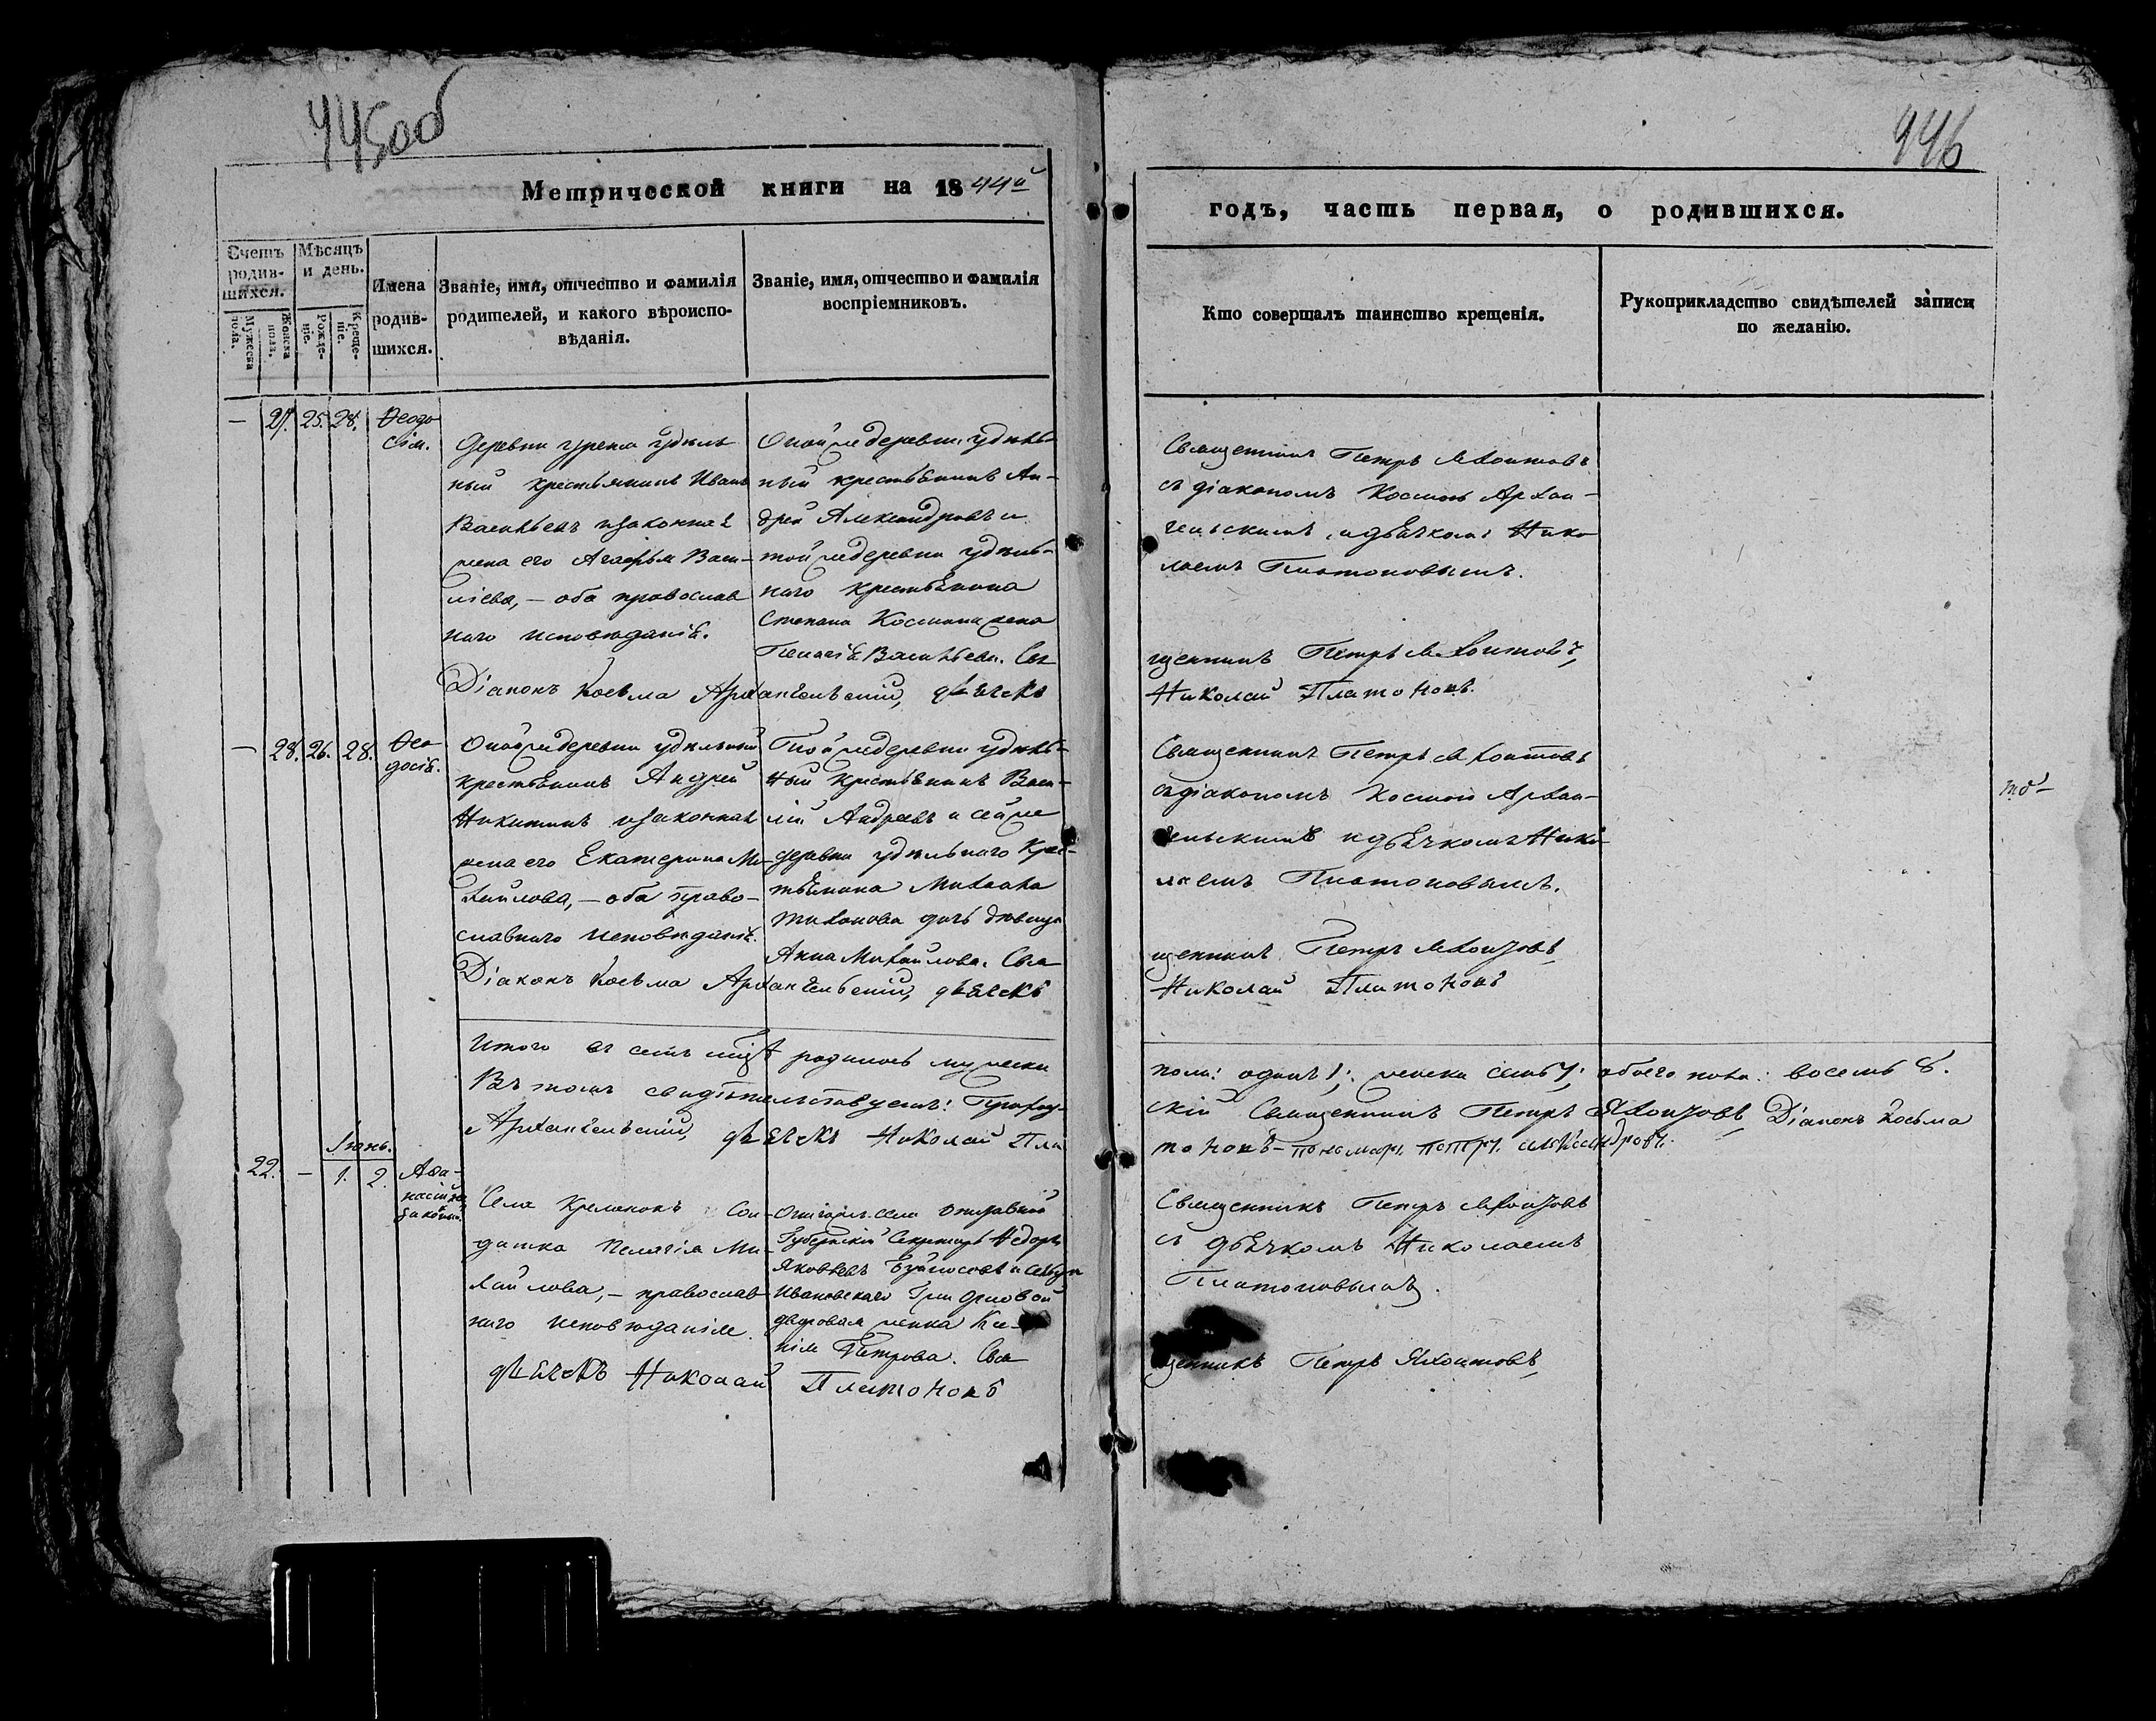 445об
446
Метрической книги на 1844й
годъ, часть первая, о родившихся.
Счетъ родив-шихся.
Мужеска пола.
Женска пола.
Мѣсяцъ и день.
Рожде-ніе.
Креще-ніе.
Имена родив-шихся.
Званіе, имя, отчество и фамилія родителей, и какого вѣроиспо-вѣданія.
Званіе, имя, отчество и фамилія воспріемниковъ.
Кто совершалъ таинство крещенія.
Рукоприкладство свидѣтелей записи по желанію.
— 27. 25. 28.
Ѳеодо
сія.
Деревни удѣль
ный крестьянинъ Иванъ
Васильевъ и законная
жена его Агафья Васи-
ліева, — оба православ
наго исповѣданія.
Оной же деревни удѣль-
ный крестьянинъ Ан-
дрей Александровъ и
той же деревни удѣль-
наго крестьянина
Степана Космина жена
Пелагія Васильева. Свя
Священникъ Петръ
съ діакономъ Космою Архан-
гельскимъ и дьячкомъ Нико
лаемъ Платоновымъ.
щенникъ Петръ
Діаконъ Косьма Архангельскій, дьячекъ
Николай Платоновъ.
— 28. 26. 28.
Ѳео
досія.
Оной же деревни удѣльный
крестьянинъ Андрей
Никитинъ и законная
жена его Екатерина Ми-
хайлова, — оба право-
славнаго исповѣданія.
Той же деревни удѣль-
ный крестьянинъ Васи-
лій Андреевъ и сей же
деревни удѣльнаго крес-
тьянина Михаила
Тихонова дочь дѣвица
Анна Михайлова. Свя
Священникъ Петръ
съ діакономъ Космою Архан-
гельскимъ и дьячкомъ Нико-
лаемъ Платоновымъ.
щенникъ Петръ
Діаконъ Косьма Архангельскій, дьячекъ
Николай Платоновъ
Итого въ семъ мцѣ родилось мужеска
пола: одинъ 1; женска семь 7; обоего пола: восемь 8.
Въ томъ свидѣтельствуемъ: Приход-
скій Священникъ Петръ Діаконъ Косьма
Архангельскій, дьячекъ Николай Пла
тоновъ – пономарь Петръ Александровъ.
Іюнь.
22. — 1. 2.
Аѳа-
насій не
законный.
Села Кременокъ Сол-
датка Пелагія Ми-
хайлова, — православ
наго исповѣданія.
села
Губернскій Секретарь Ѳедоръ
Яковлевъ
Ивановскаго
дворовая женка Ксе-
нія Петрова. Свя
Священникъ Петръ
съ дьячкомъ Николаемъ
Платоновымъ.
щенникъ Петръ
дьячекъ Николай Платоновъ